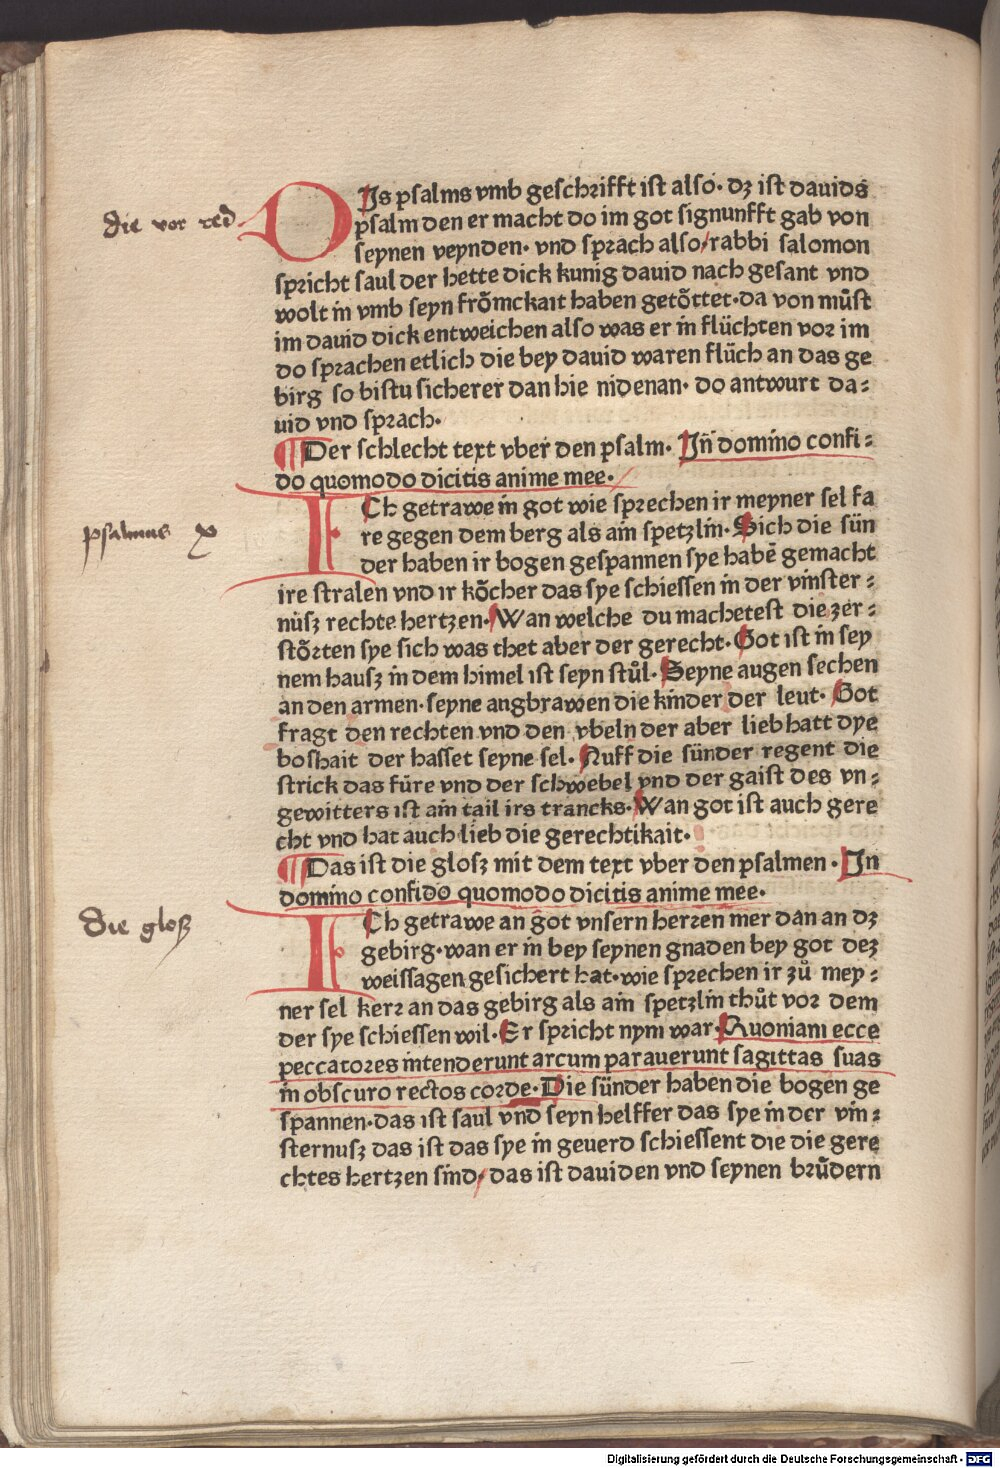 die vor red
DJs psalms vmb geschrifft ist also· dz ist dauids
psalm den er macht do im got signunfft gab von
seynen veynden· vnd sprach also/rabbi salomon
spricht saul der hette dick kunig dauid nach gesant vnd
wolt in vmb seyn frõmckait haben getõttet·da von můst
im dauid dick entweichen also was er in flüchten vor im
do sprachen etlich die bey dauid waren flüch an das ge
birg so bistu sicherer dan hie nidenan· do antwurt da⸗
uid vnd sprach·
¶Der schlecht text vber den psalm· Jn̄ domino confi⸗
do quomodo dicitis anime mee·
psalmus x
ICh getrawe in got wie sprechen ir meyner sel fa
re gegen dem berg als ain spetzlin· Sich die sün
der haben ir bogen gespannen sye habē gemacht
ire stralen vnd ir kõcher das sye schiessen in der vinster⸗
nüsz rechte hertzen· Wan welche du machetest die zer⸗
stõrten sye sich was thet aber der gerecht· Got ist in sey
nem hausz in dem himel ist seyn stůl· Seyne augen sechen
an den armen· seyne angbrawen die kinder der leut· Got
fragt den rechten vnd den vbeln der aber lieb hatt dye
boshait der hasset seyne sel· Auff die sünder regent die
strick das füre vnd der schwebel vnd der gaist des vn⸗
gewitters ist ain tail irs trancks· Wan got ist auch gere
cht vnd hat auch lieb die gerechtikait·
¶Das ist die glosz mit dem text vber den psalmen · Jn
domino confido quomodo dicitis anime mee·
die glosz
ICh getrawe an got vnsern herren mer dan an dz
gebirg· wan er in bey seynen gnaden bey got dez
weissagen gesichert hat· wie sprechen ir zů mey⸗
ner sel kerr an das gebirg als ain spetzlin thůt vor dem
der sye schiessen wil· Er spricht nym war· Quoniam ecce
peccatores intenderunt arcum parauerunt sagittas suas
in obscuro rectos corde· Die sünder haben die bogen ge
spannen· das ist saul vnd seyn helffer das sye in der vin⸗
sternusz das ist das sye in geuerd schiessent die die gere
chtes hertzen sind/ das ist dauiden vnd seynen brůdern
Digitalisierung gefördert durch die Deutsche Forschungsgemeinschaft - DFG